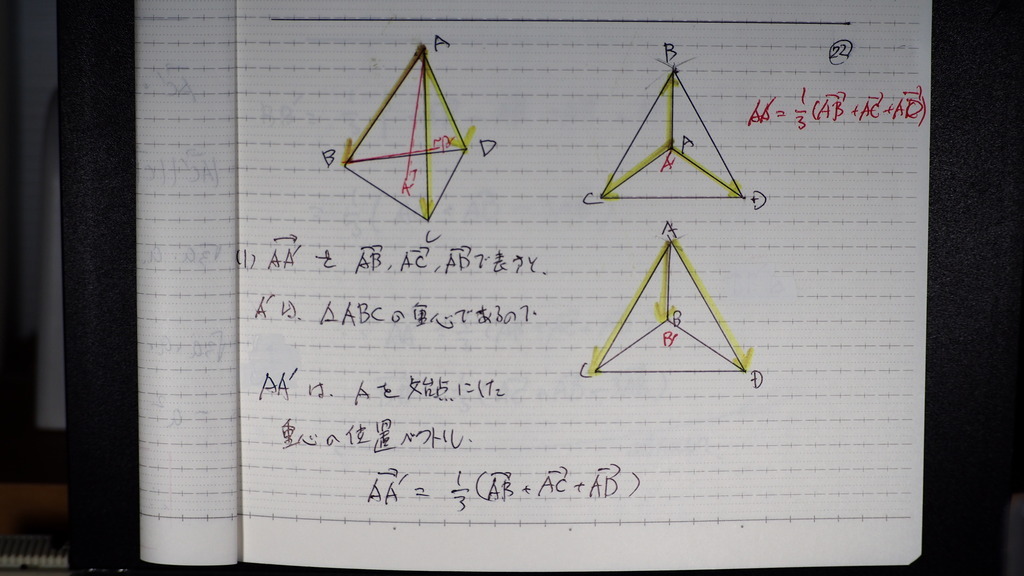 A
B
D
A'
C
B
A
A'
C
D
㉒
AA' = 1/3 (AB + AC + AD)
(1) AA' を AB, AC, ADで表すと、
A'は、△ABCの重心であるので
AA'は、Aを始点にした
重心の位置ベクトル.
AA' = 1/3 (AB + AC + AD)
A
B
B'
C
D